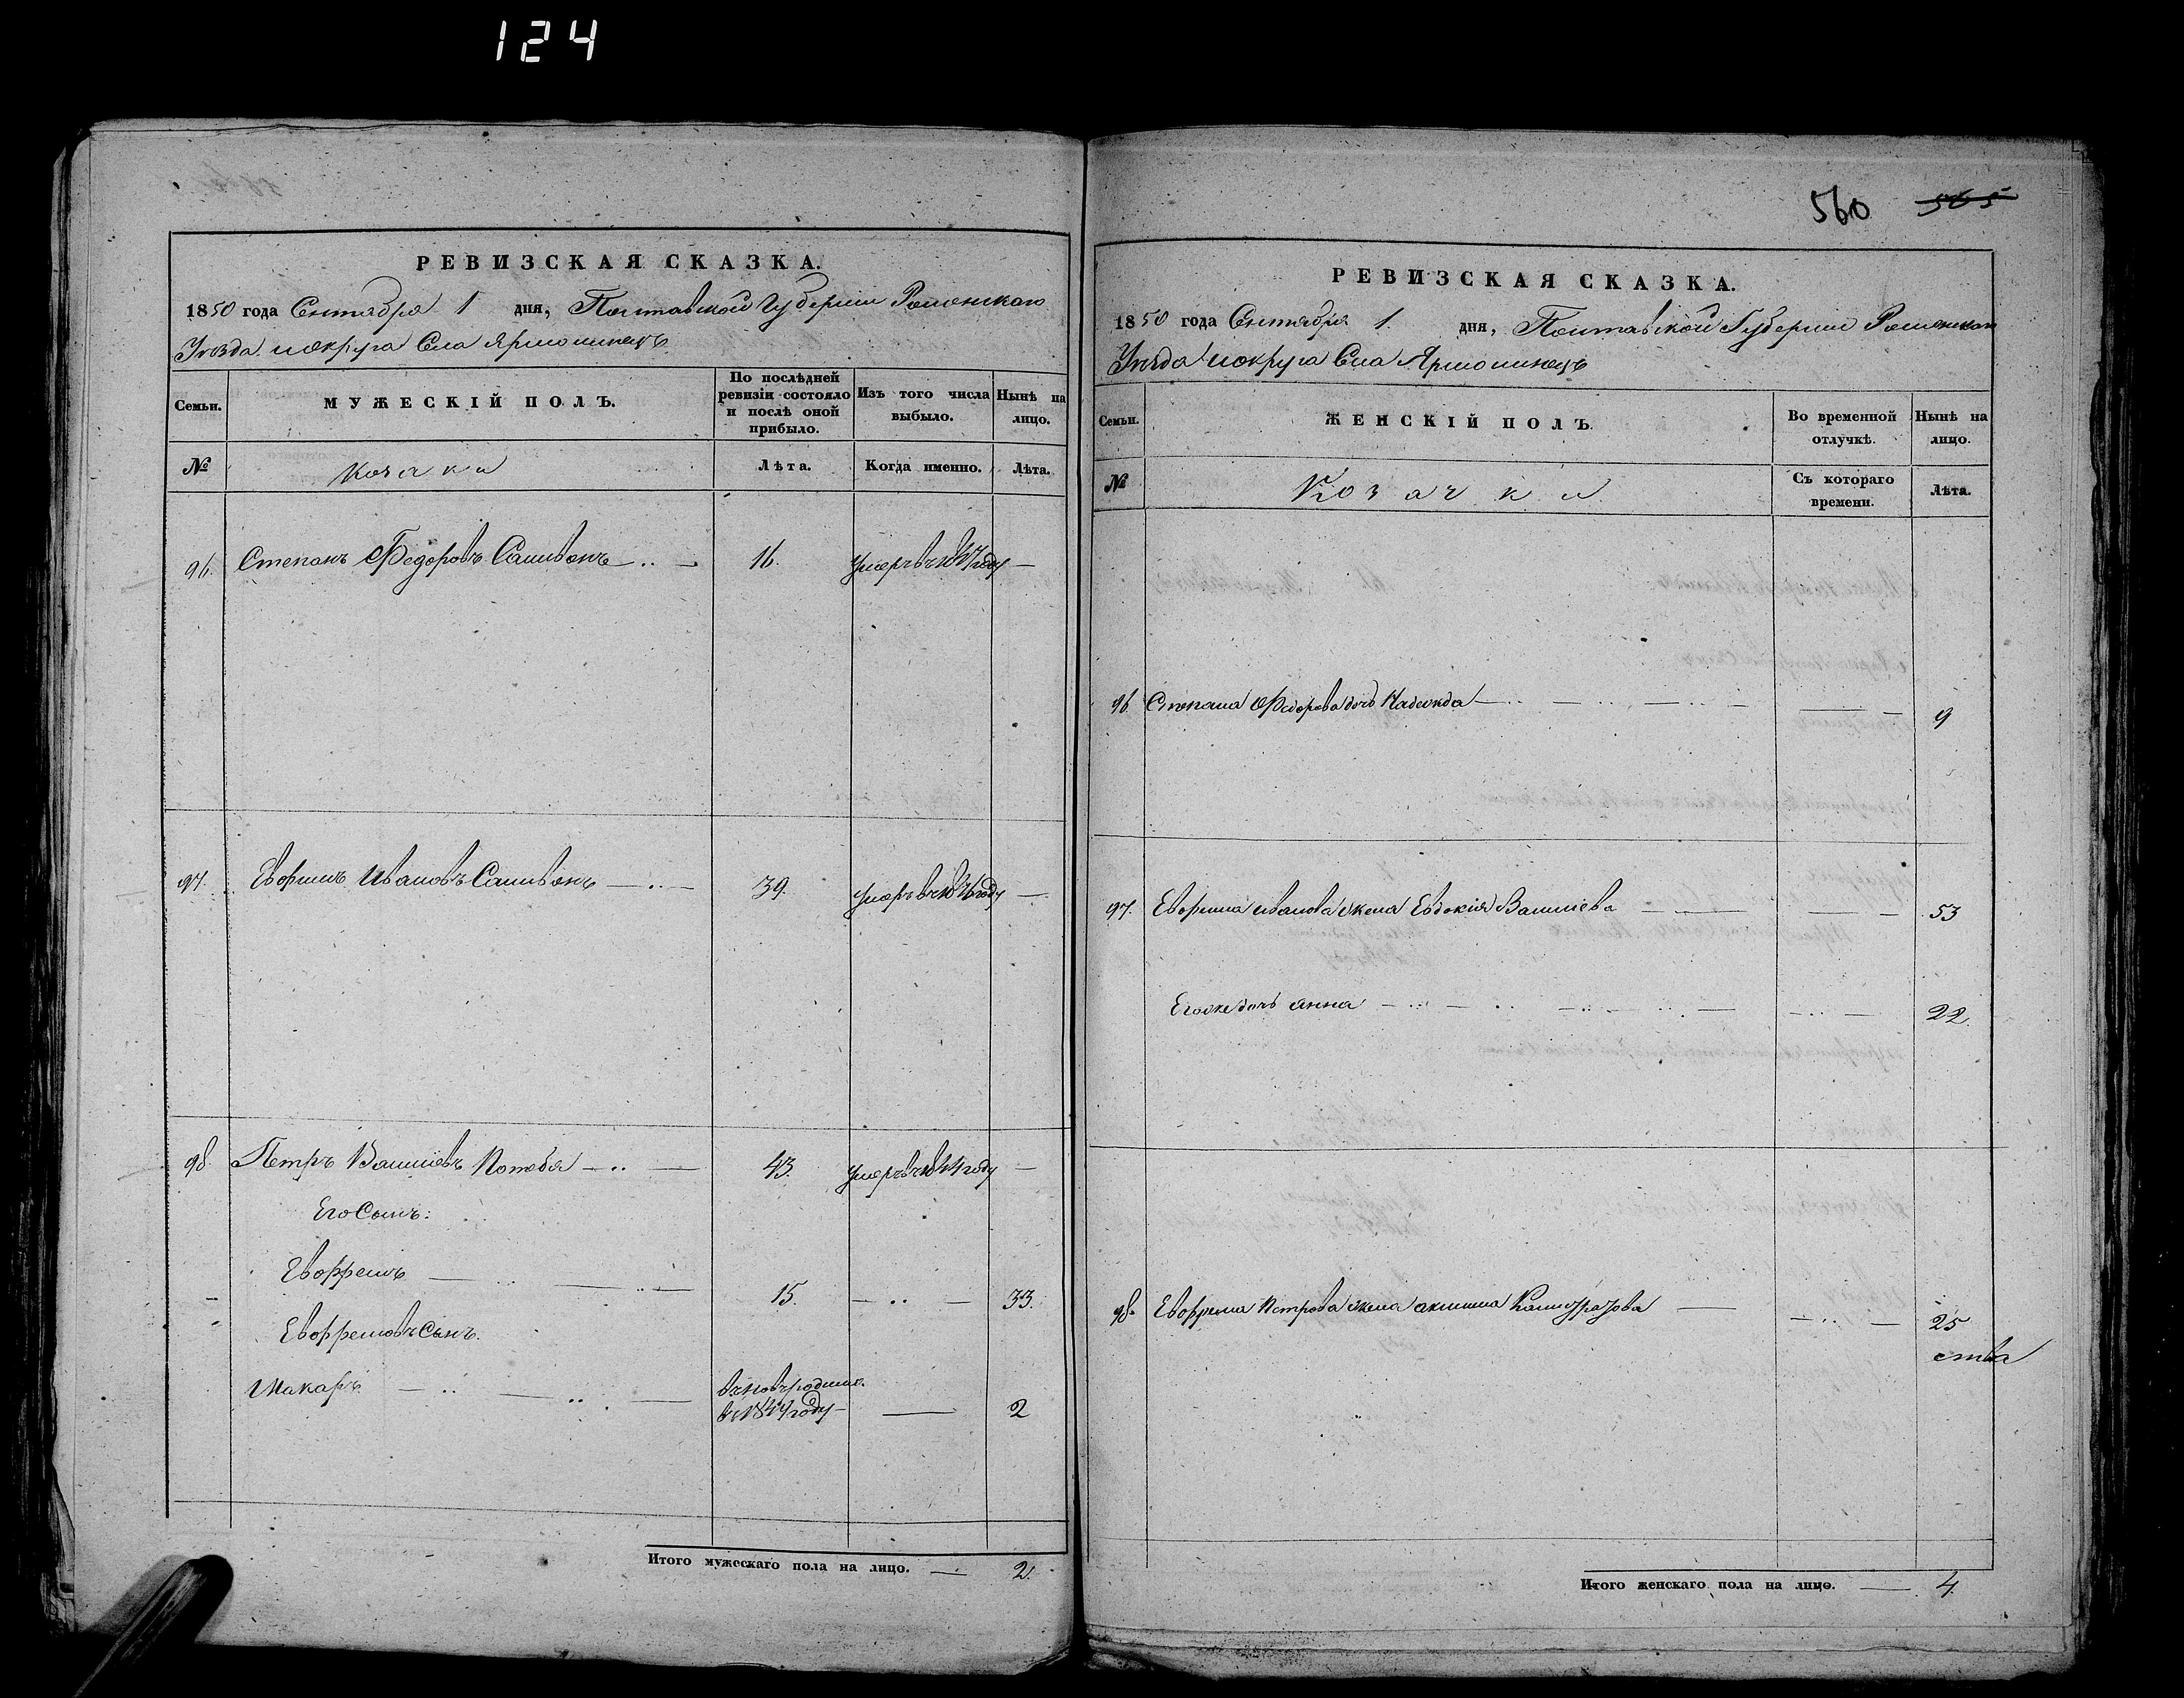 124
РЕВИЗСКАЯ СКАЗКА.
1850 года Сентября 1 дня, Полтавской Губерніи Роменскаго
Уезда и округа Села Ярмолинецъ
Семьи. МУЖЕСКІЙ ПОЛЪ. По послѣдней ревизіи состояло и послѣ оной прибыло. Изъ того числа выбыло. Нынѣ на лицо.
№ Козаки Лѣта. Когда именно. Лѣта.
96. Степанъ Федоровъ Саливонъ 16. умеръ въ году
97. Ивановъ Саливонъ 39. умеръ въ году
98 Петръ Потебя 43. умеръ въ 1844 году
Его Сынъ:
Евфремъ 15. 33.
Евфремовъ Сынъ.
Макаръ вновь родился
въ году 2
Итого мужескаго пола на лицо. 2.
560 565
РЕВИЗСКАЯ СКАЗКА.
1850 года Сентября 1. дня, Полтавской Губерніи Роменскаго
Уезда и округа Села Ярмолинецъ
Семьи. ЖЕНСКІЙ ПОЛЪ. Во временной отлучкѣ. Нынѣ на лицо.
№ Козачки Съ котораго времени. Лѣта.
96. Степана Федорова дочь Надежда 9
97. Иванова жена Евдокія 53
Его же дочь анна 22.
98. Евфрема Петрова жена акилина 25
ства
Итого женскаго пола на лицо. 4.